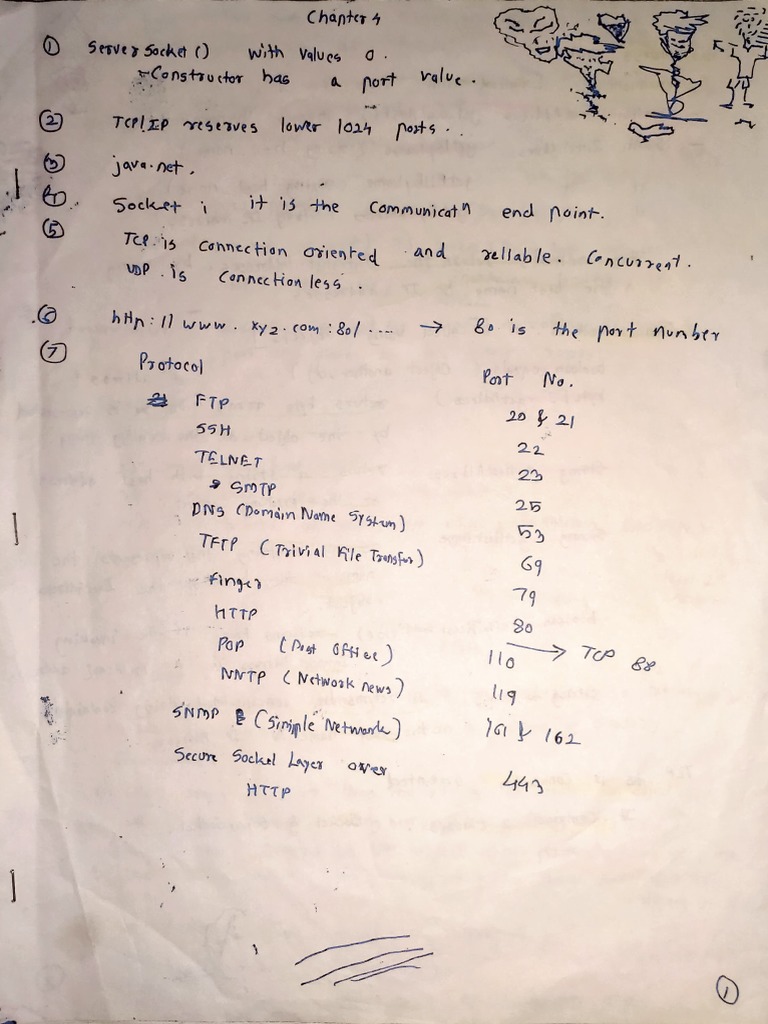 Chapter 4
① Server Socket () with values 0.
Constructor has a port value.
② TCP/IP reserves lower 1024 ports..
③ java.net.
④ Socket ; it is the communicatⁿ end point.
⑤
TCP. is connection oriented and rellable. Concurrent.
UDP. is connection less.
⑥ http://www.xyz.com:80/.... → 80 is the port number
⑦ Protocol Port No.
FTP 20 & 21
SSH 22
TELNET 23
SMTP 25
DNS (Domain Name System) 53
TFTP (Trivial File Transfer) 69
Finger 79
HTTP 80
POP (Post Office) 110 → TCP 88
NNTP (Network news) 119
SNMP (Simple Network) 161 & 162
Secure Socket Layer over
HTTP 443
①